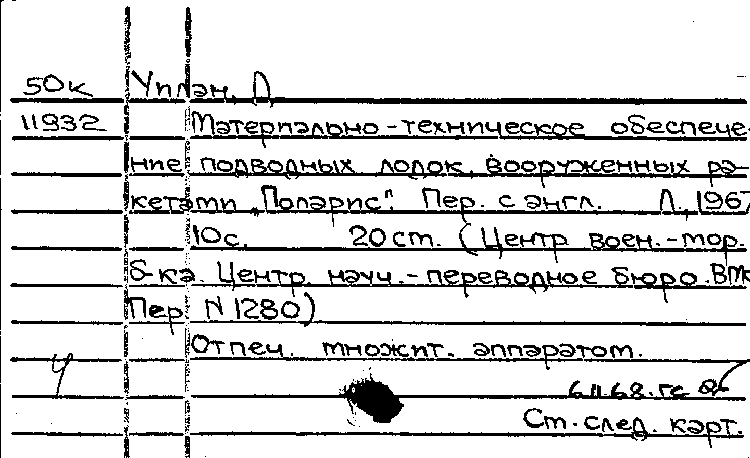 50к Уплан, Д.
11932 Материально-техническое обеспече
ние подводных лодок, вооруженных ра-
кетами „Поларис“. Пер. с англ. Л., 1967
10с. 20 ст. (Центр. воен.-мор.
б-ка. Центр. науч.-переводное бюро. ВМФ
Пер N 1280)
Отпеч. множит. аппаратом.
Ч
6.II.68. гс
Ст. след. карт.